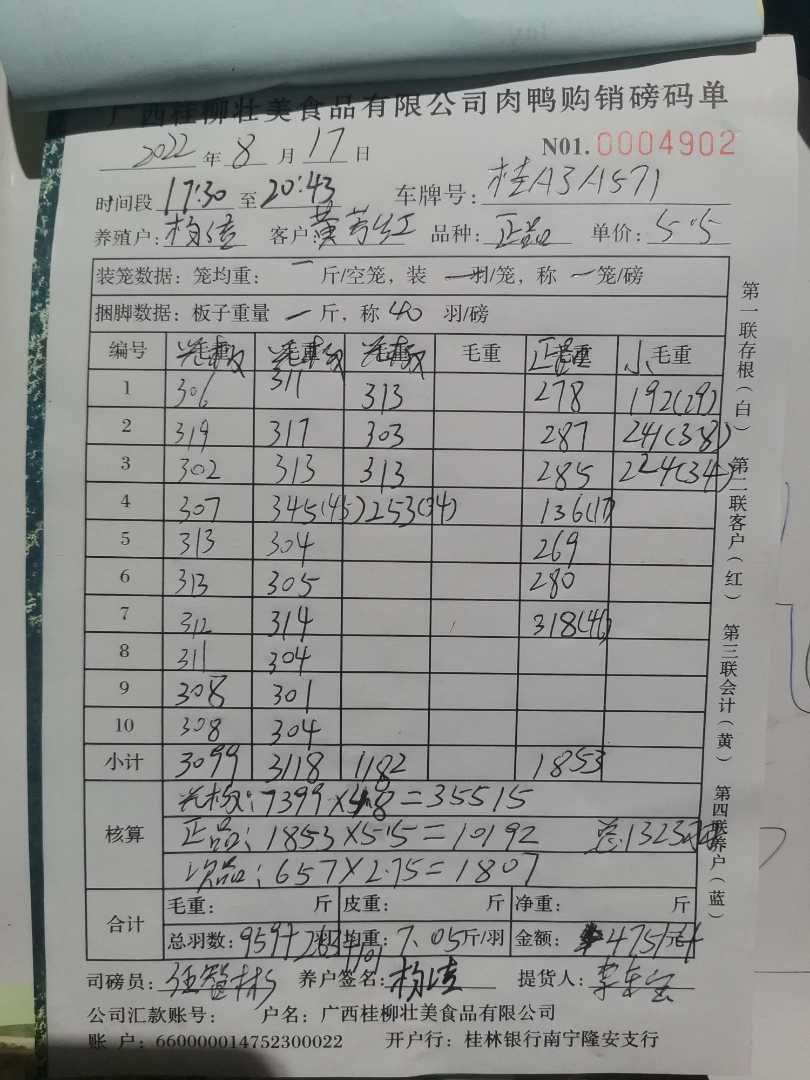 广西桂柳壮美食品有限公司肉鸭购销磅码单
2022 年 8 月 17 日 N01. 0004902
时间段 17:30 至 20:43 车牌号: 桂A3A571
养殖户: 客户: 黄芳红 品种: 正品 单价: 5.5
装笼数据: 笼均重: 一 斤/空笼, 装 一 羽/笼, 称 一 笼/磅
捆脚数据: 板子重量 一 斤, 称 40 羽/磅
编号 毛重 毛重 毛重 毛重 正品 毛重 小 毛重
1 306 311 313 278 192(29)
2 319 317 303 287 241(38)
3 302 313 313 285 224(34)
4 307 345(45) 253(34) 136(17)
5 313 304 269
6 313 305 280
7 312 314 318(46)
8 311 304
9 308 301
10 308 304
小计 3099 3118 1182 1853
核算
7399×4.8=35515
正品: 1853×5.5=10192
次品: 657×2.75=1807
合计
毛重: 斤 皮重: 斤 净重: 斤
总羽数: 959+ 羽 均重: 7.05 斤/羽 金额: 47514 元
1101
司磅员: 养户签名: 提货人:
公司汇款账号: 户名: 广西桂柳壮美食品有限公司
账 户: 660000014752300022 开户行: 桂林银行南宁隆安支行
第一联存根(白)
第二联客户(红)
第三联会计(黄)
第四联养户(蓝)